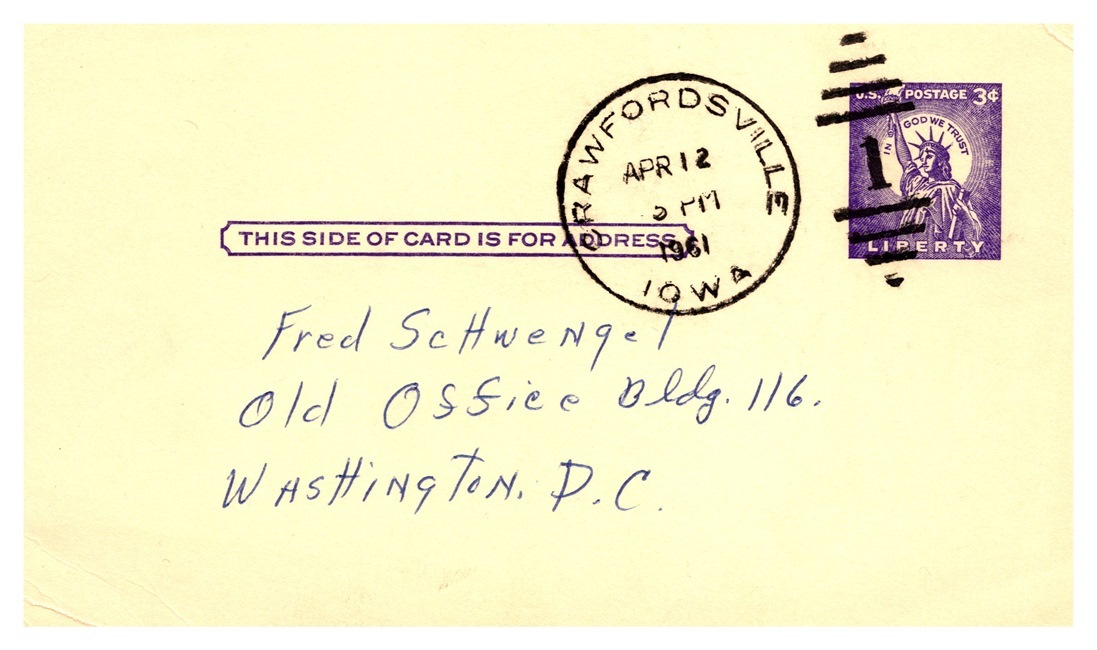 U.S. POSTAGE 3¢
IN GOD WE TRUST
LIBERTY
1
CRAWFORDSVILLE
APR 12
PM
1961
IOWA
THIS SIDE OF CARD IS FOR ADDRESS
Fred Schwengel
Old Office Bldg. 116.
Washington, D.C.